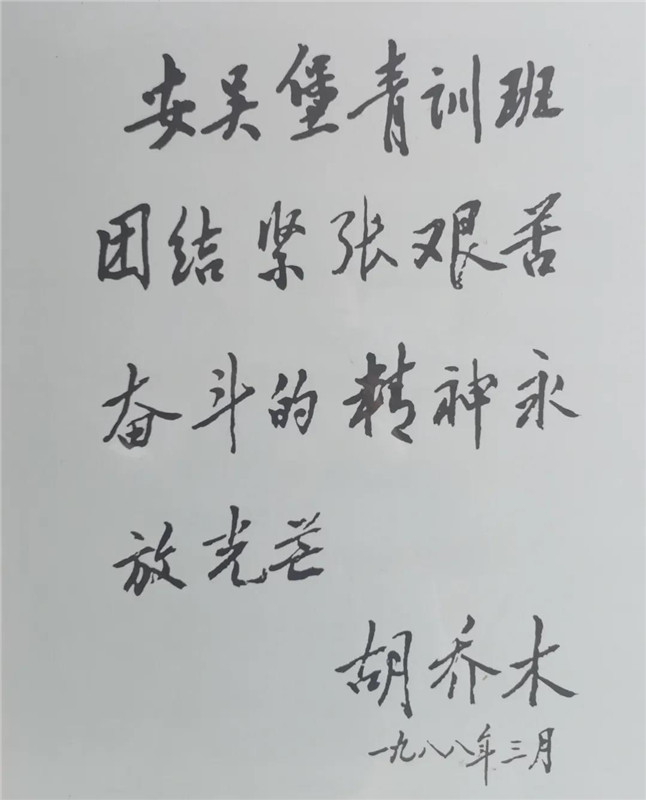 安吴堡青训班
团结紧张艰苦
奋斗的精神永
放光芒
胡乔木
一九八八年三月